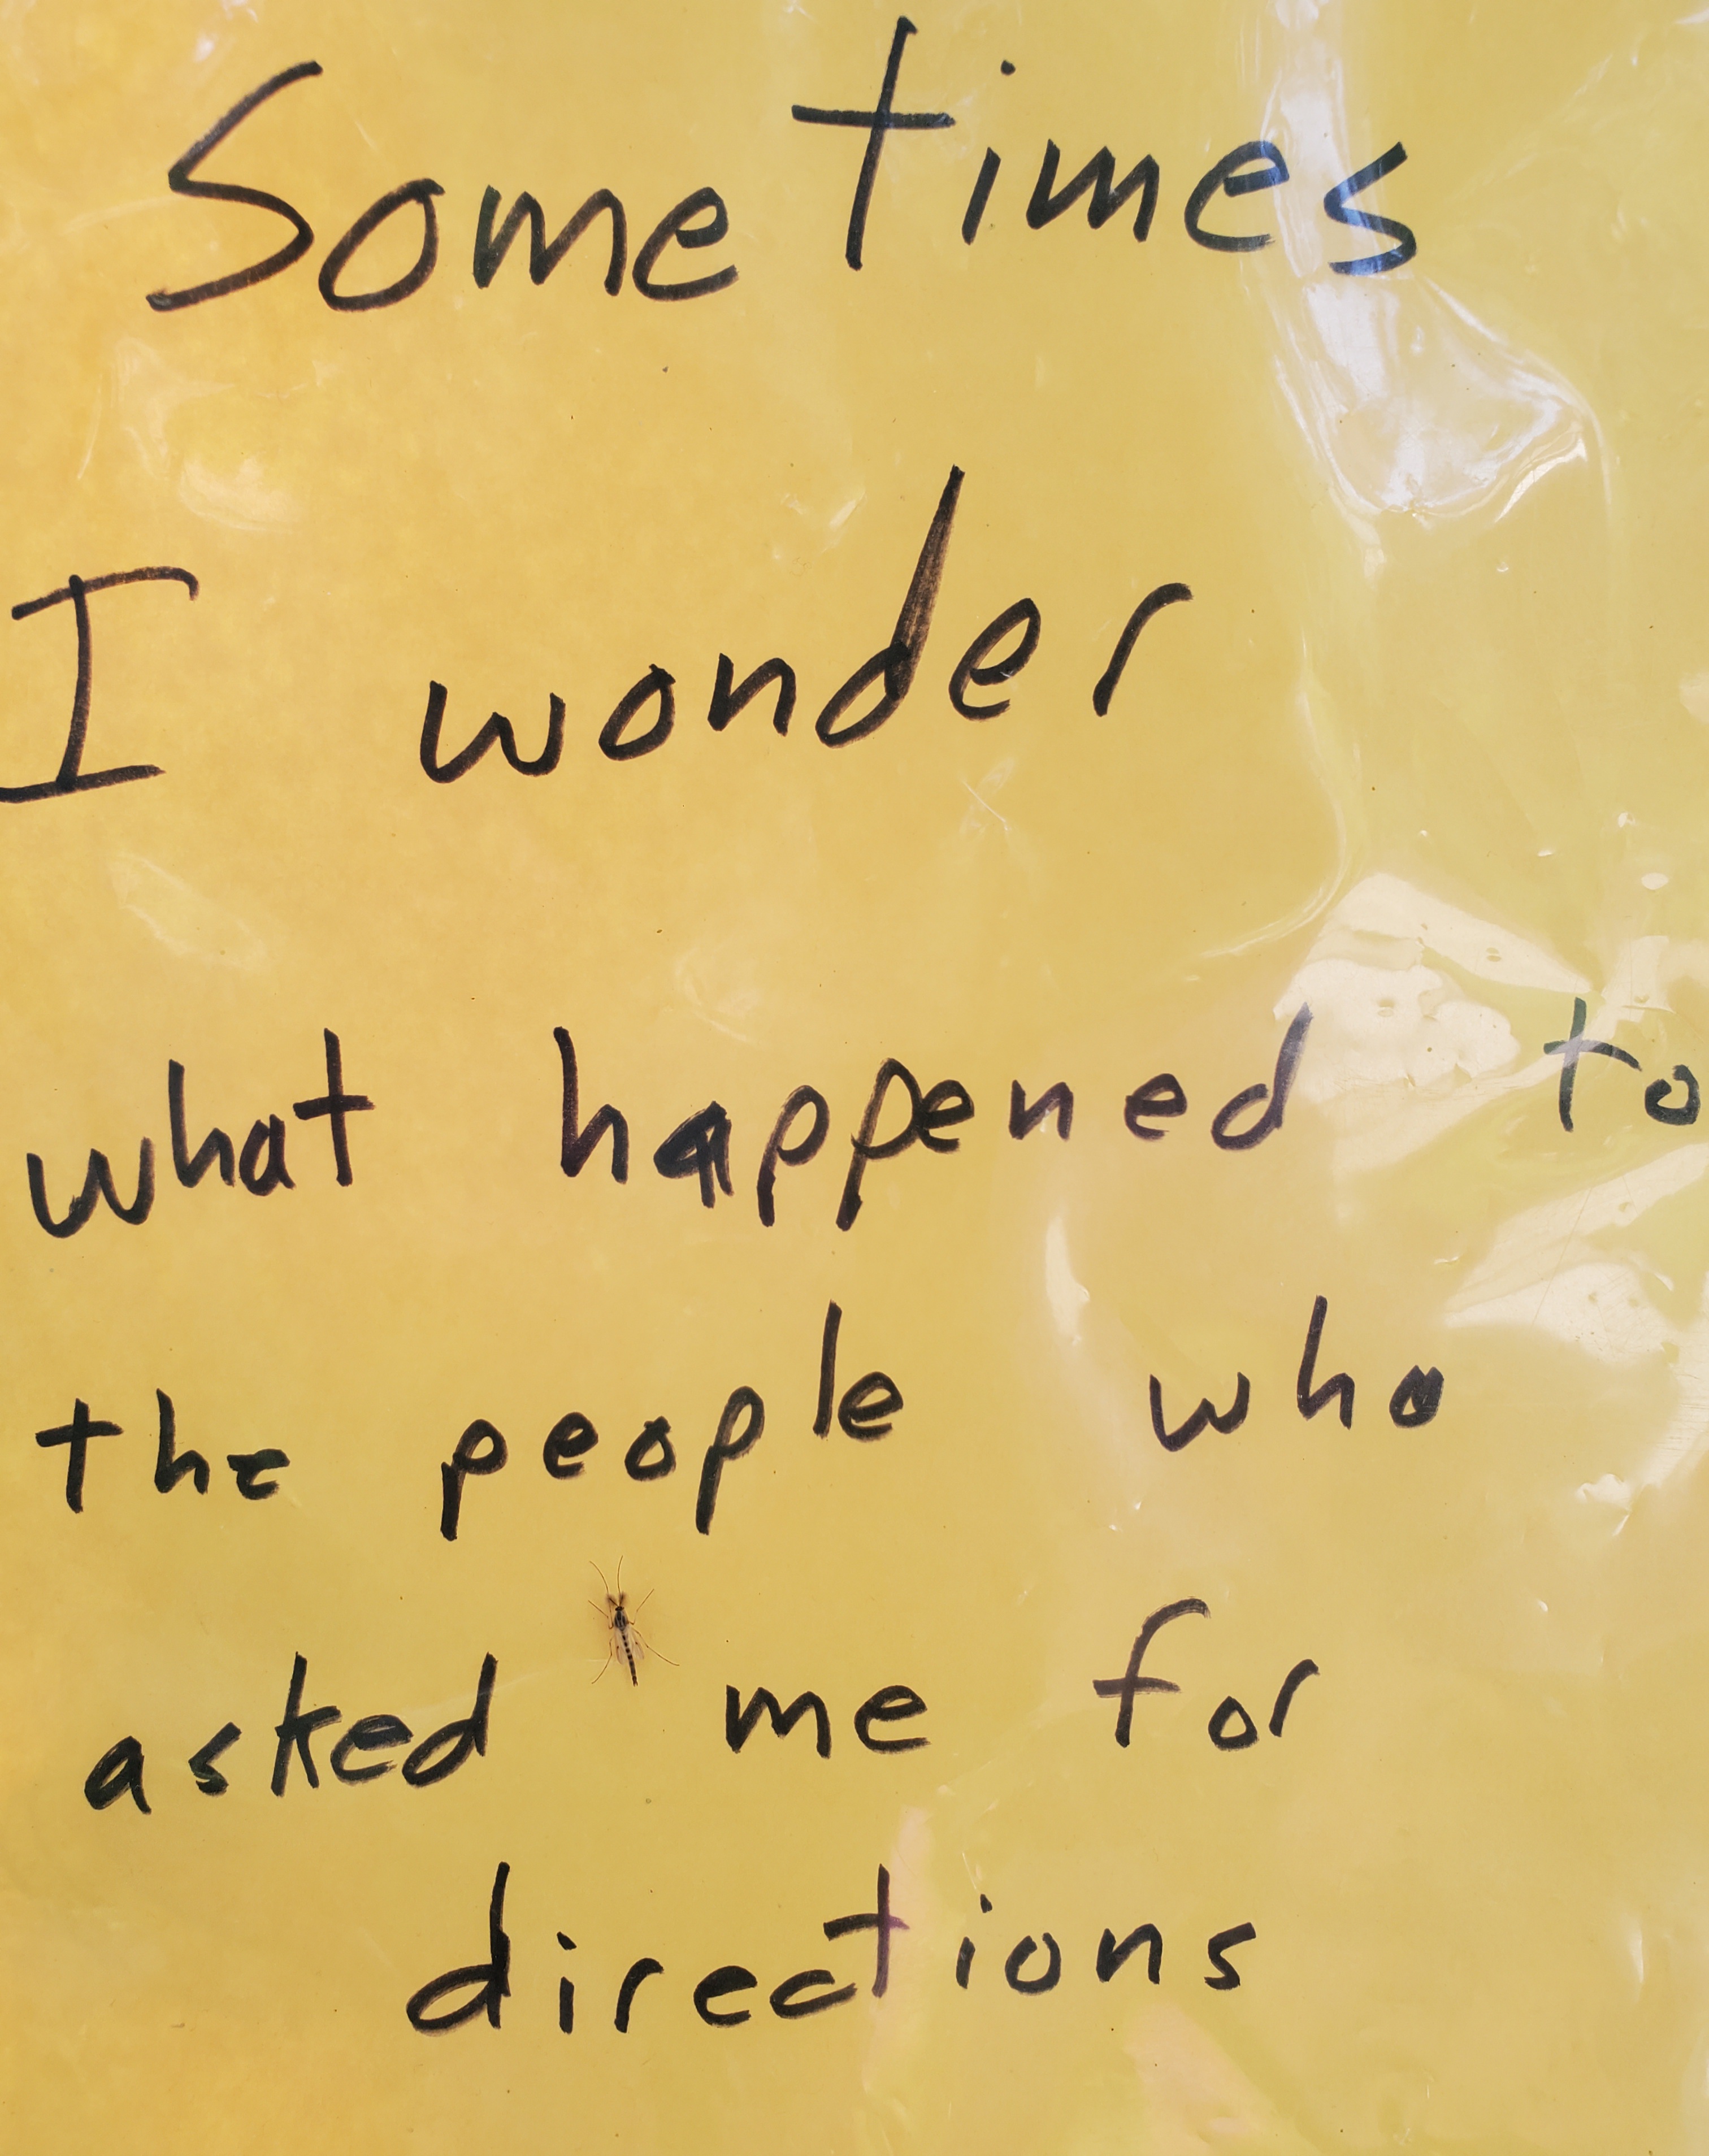 Some times
I wonder
what happened to
the people who
asked me for
directions